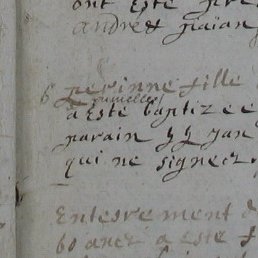 ont este pre
andré paian
6 perinne fille
jumelle
a este baptizee
parain jan
qui ne signe
Enterrement d
60 ans a este f